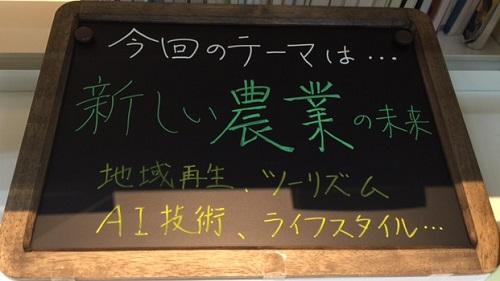 今回のテーマは…
新しい農業の未来
地域再生、ツーリズム
AI技術、ライフスタイル…